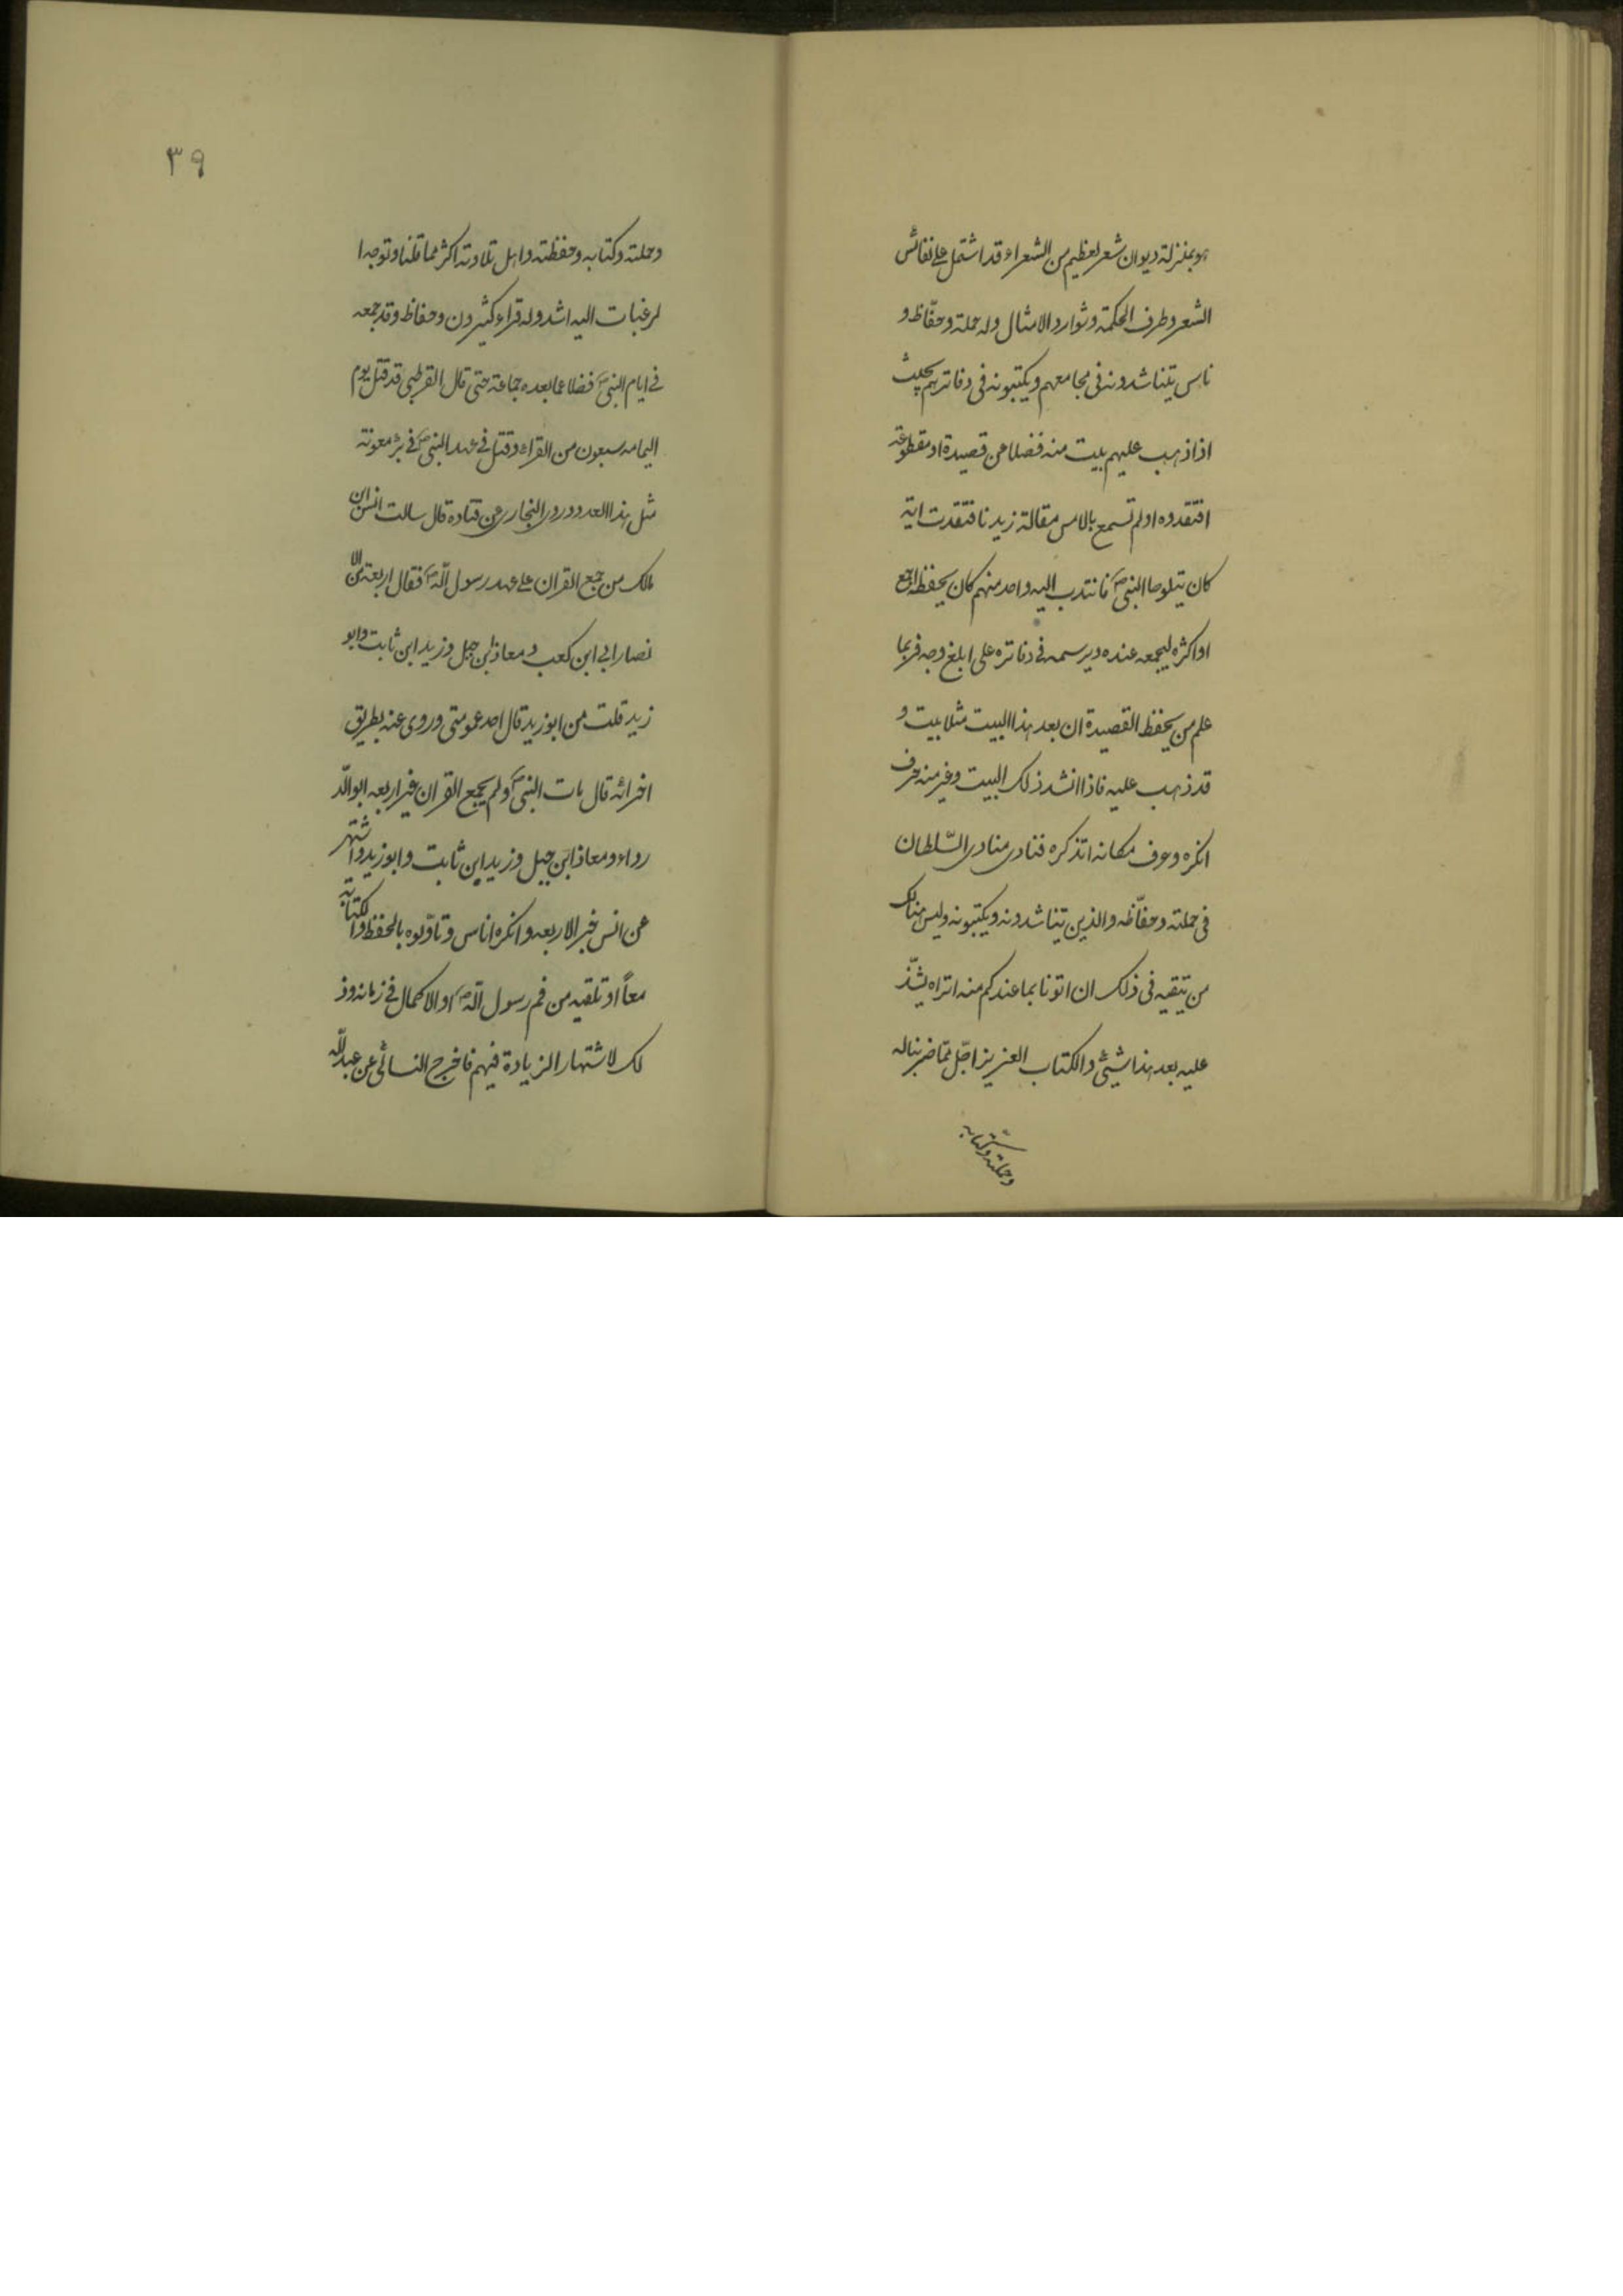 هو بمنزلة ديوان شعر لعظيم من الشعراء قد اشتمل على نفائس
الشعر وطرف الحكمة وشوارد الامثال وله حملة وحفّاظ و
ناس يتناشدونه في مجامعهم ويكتبونه في دفاترهم بحيث
اذا ذهب عليهم بيت منه فضلا عن قصيدة او مقطوعة
افتقدوه او لم تسمع بالامس مقالة زيد نا فتقدت اية
كان يتلوها النبي ص فانتدب اليه واحد منهم كان يحفظه اجمع
او اكثره ليجمعه عنده ويرسمه في دفاتره على ابلغ وجه فربما
علم من يحفظ القصيدة ان بعد هذا البيت مثلا بيت و
قد ذهب عليه فاذا انشد ذلك البيت وغير منه حرف
انكره وعرف مكانه اتذكره فنادى منادى السّلطان
في حملته وحفّاظه والذين يتناشدونه ويكتبونه وليس هناك
من يتقيه في ذلك ان اتونا بما عندكم منه اتراه يشذّ
عليه بعد هذا شيئ والكتاب العزيز اجّل ممّا ضربنا له
وحملته وكتابه
٣٩
وحملته وكتابه وحفظته واهل تلاوته اكثر مما قلنا وتوجه ا
لرغبات اليه اشد وله قراء كثيرون وحفاظ وقد جمعه
في ايام النبي ص فضلا عما بعده جماعة حتى قال القرطبي قد قتل يوم
اليمامه سبعون من القراء وقتل في عهد النبي ص في بئر معونة
مثل هذا العدد وروى النجارى عن قتاده قال سالت انس ابن
مالك من جمع القران على عهد رسول اللّه ص فقال اربعة من الا
نصار ابي ابن كعب ومعاذ ابن جبل وزيد ابن ثابت وابو
زيد قلت من ابو زيد قال احد عمومتى وروى عنه بطريق
اخر انه قال مات النبي ص ولم يجمع القران غير اربعه ابو الدّ
رداء ومعاذ ابن جبل وزيد ابن ثابت وابو زيد واشتهر
عن انس خبر الاربعه وانكره اناس وتاوّلوه بالحفظ والكتابة
معاً او تلقيه من فم رسول اللّه ص او الاكمال في زمانه وذ
لك لاشتهار الزيادة فيهم فاخرج النسائي عن عبد اللّه